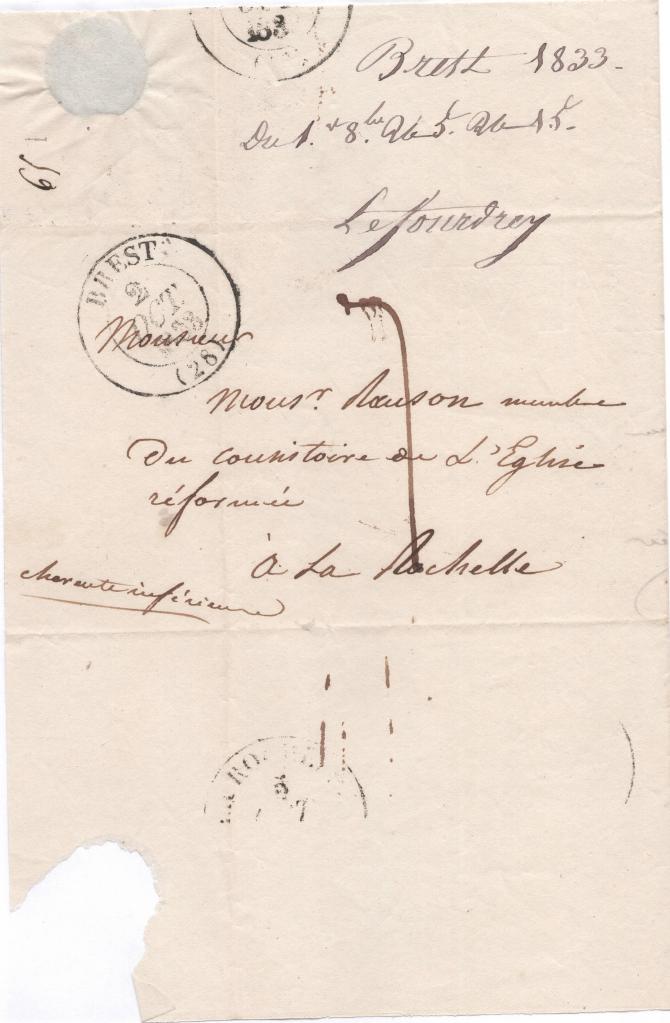 183
Brest 1833.
Du 1.er 8.bre
19
Le fourdrey
BREST
2
OCT
1833
(28)
Monsieur
Mons.r Ranson membre
Du consistoire de L'Eglise
réformée
à La Rochelle
charente inférieure
7
LA ROCHE
5